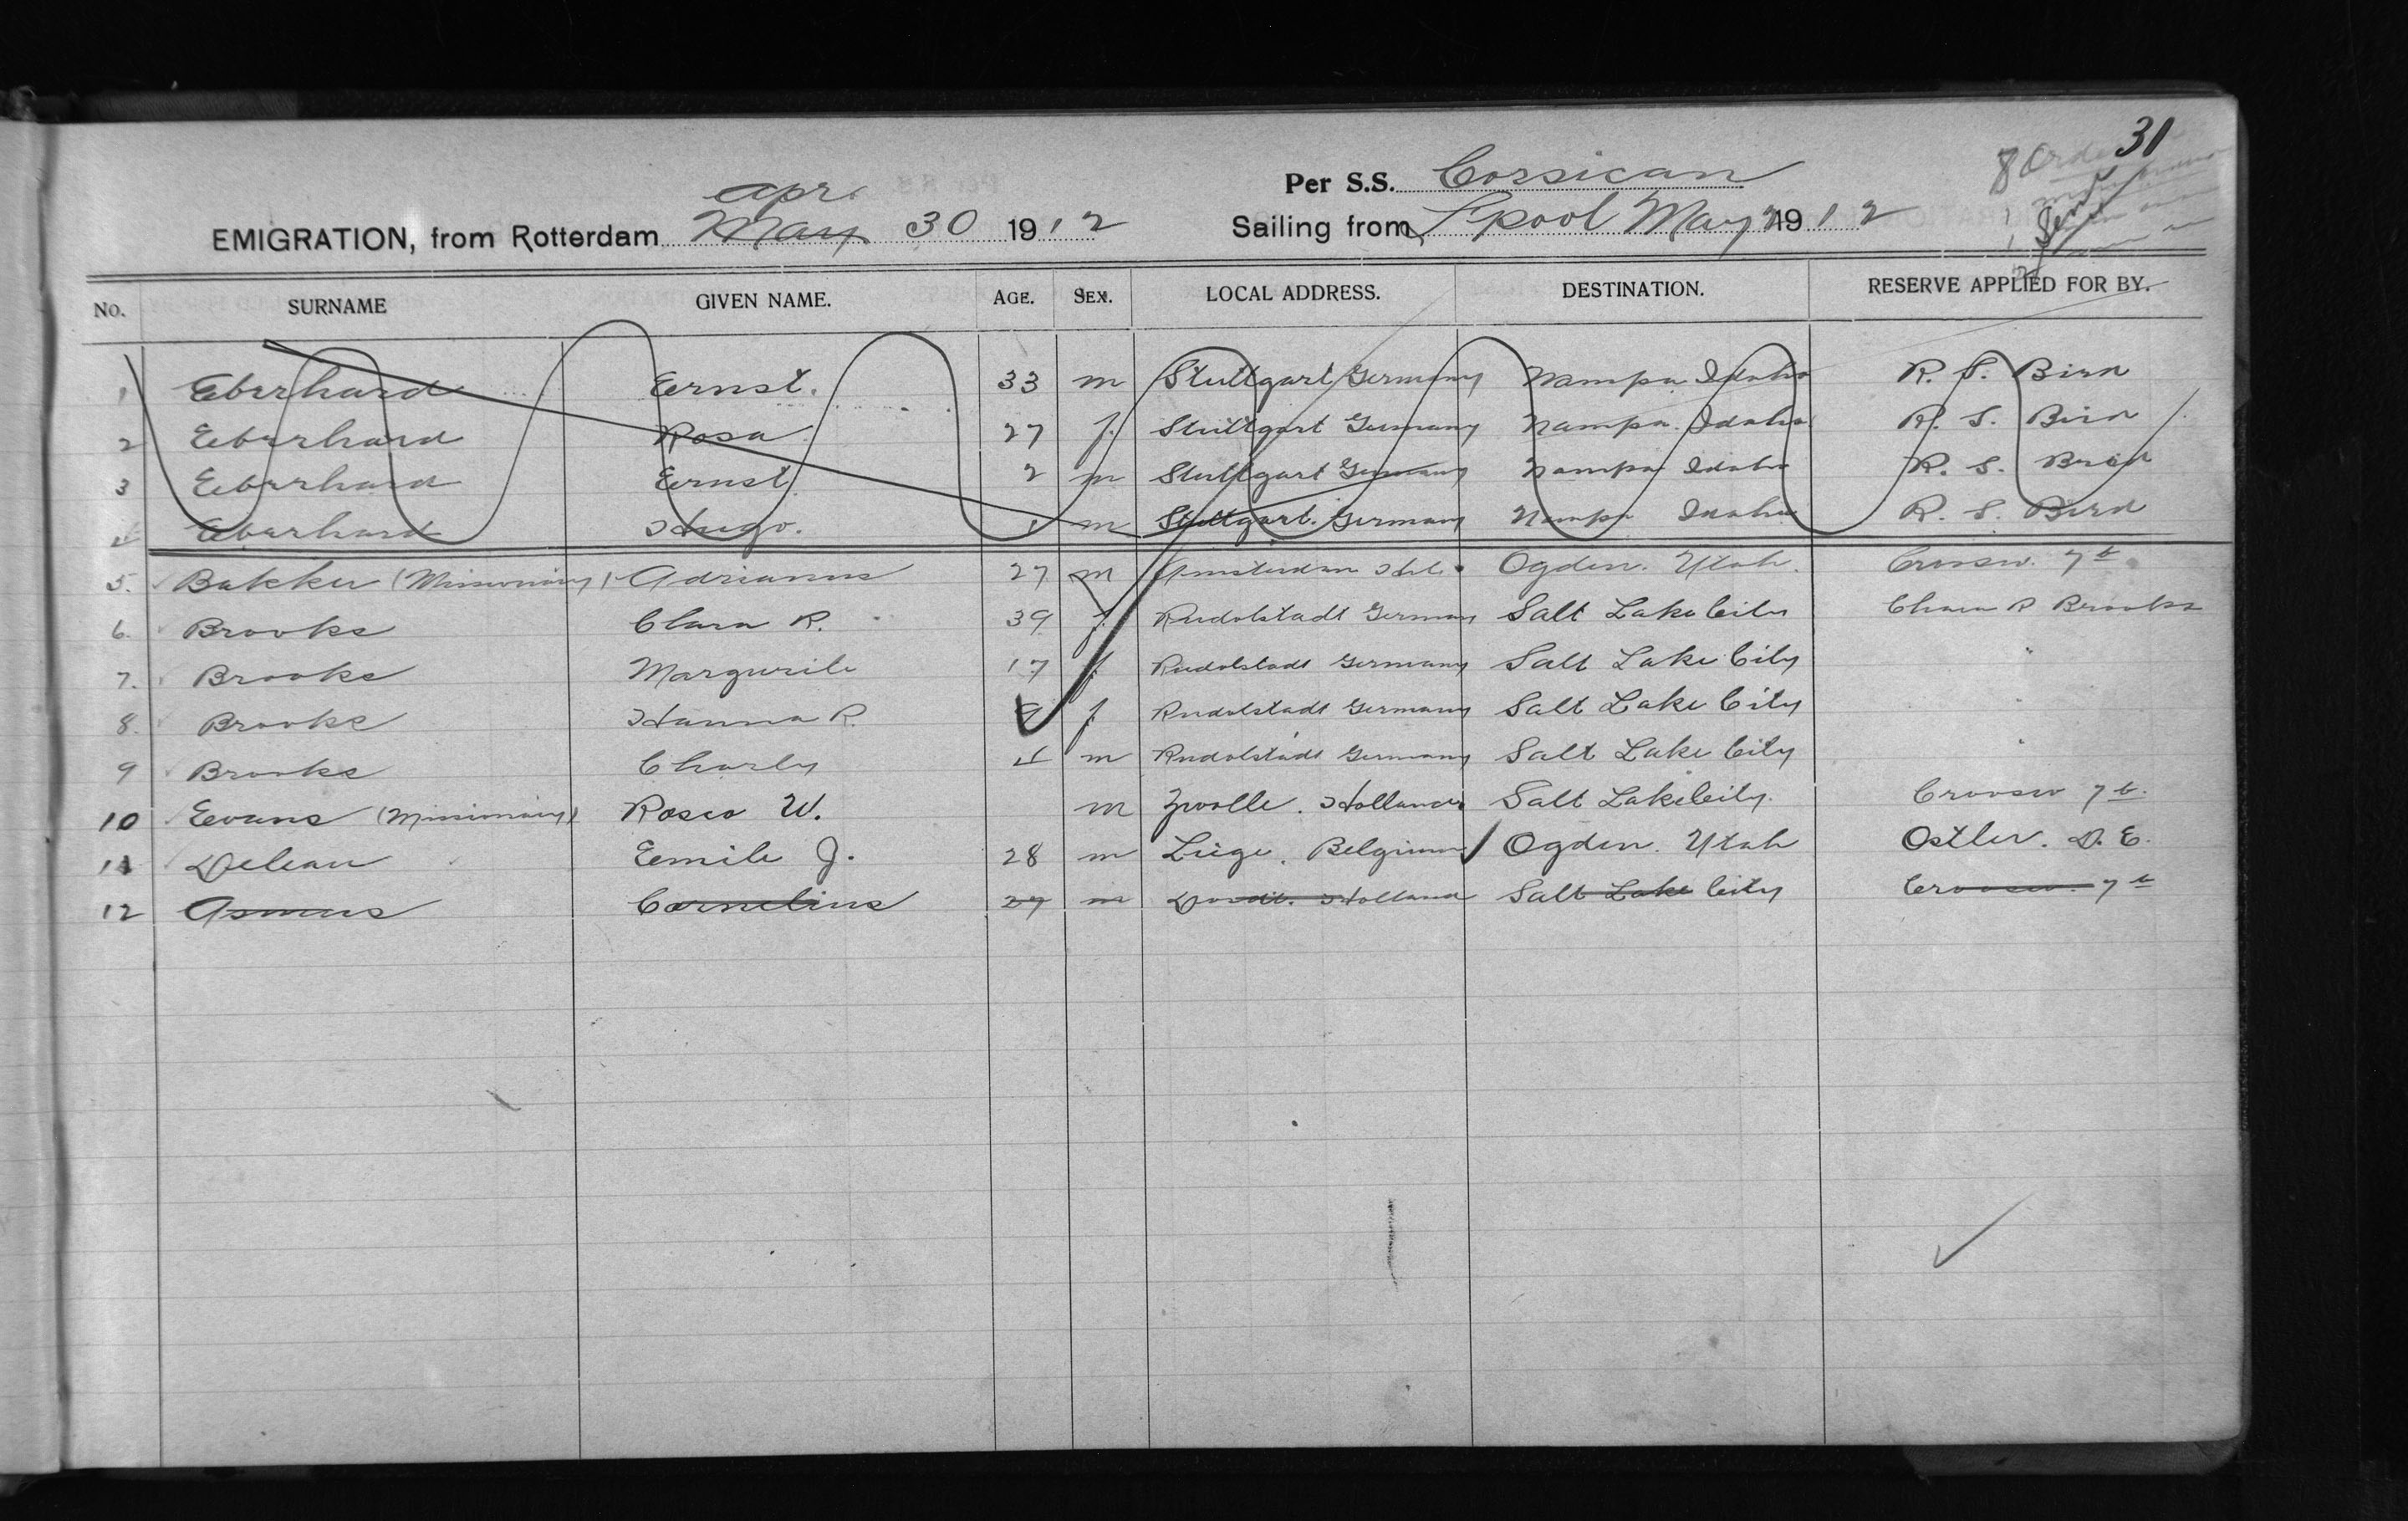 31
8 Orde
Per S.S. Corsican
apr.
EMIGRATION, from Rotterdam May 30 1912 Sailing from L'pool May 2 1912
No. SURNAME GIVEN NAME. AGE. SEX. LOCAL ADDRESS. DESTINATION. RESERVE APPLIED FOR BY.
1 Eberhard Ernst. 33 m Stuttgart Germany Nampa Idaho R. S. Bird
2 Eberhard Rosa 27 f. Stuttgart Germany Nampa. Idaho R. S. Bird
3 Eberhard Ernst 2 m Stuttgart Germany Nampa Idaho R. S. Bird
4 Eberhard Hugo. 1 m Stuttgart. Germany Nampa Idaho R. S. Bird
5. Bakker (Missionary) Adrianus 27 m Amsterdam Hol. Ogden. Utah. Croosw. 7b
6. Brooks Clara R. 39 f. Rudolstadt Germany Salt Lake City Clara R Brooks
7. Brooks Margurite 17 f. Rudolstadt Germany Salt Lake City "
8. Brooks Hanna R. f. Rudolstadt Germany Salt Lake City "
9 Brooks Charly 4 m Rudolstadt Germany Salt Lake City "
10 Evans (Missionary) Rosco W. m Zwolle. Holland Salt Lake City. Croosw 7b.
11 Delean Eemile J. 28 m Liege. Belgium Ogden. Utah Ostler. D. E.
12 Asmus Cornelius 27 m Dordt. Holland Salt Lake City Croosw. 7b